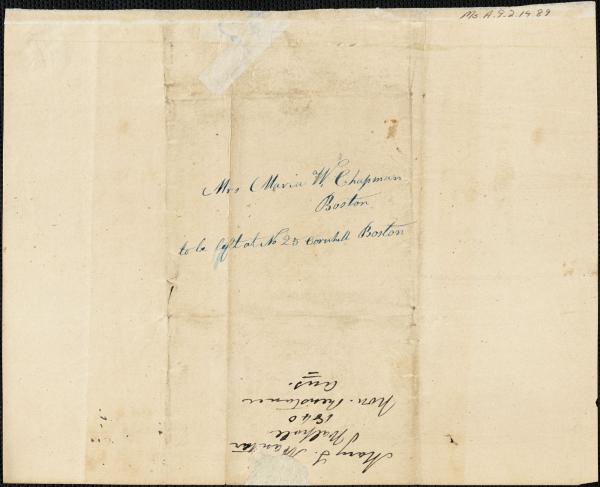 Ms. A.9.2.14.89
Mrs Maria W. Chapman
Boston
to be left at No 25 Cornhill Boston
Mary S.
Walpole
1840
Non-Resistance
ans.